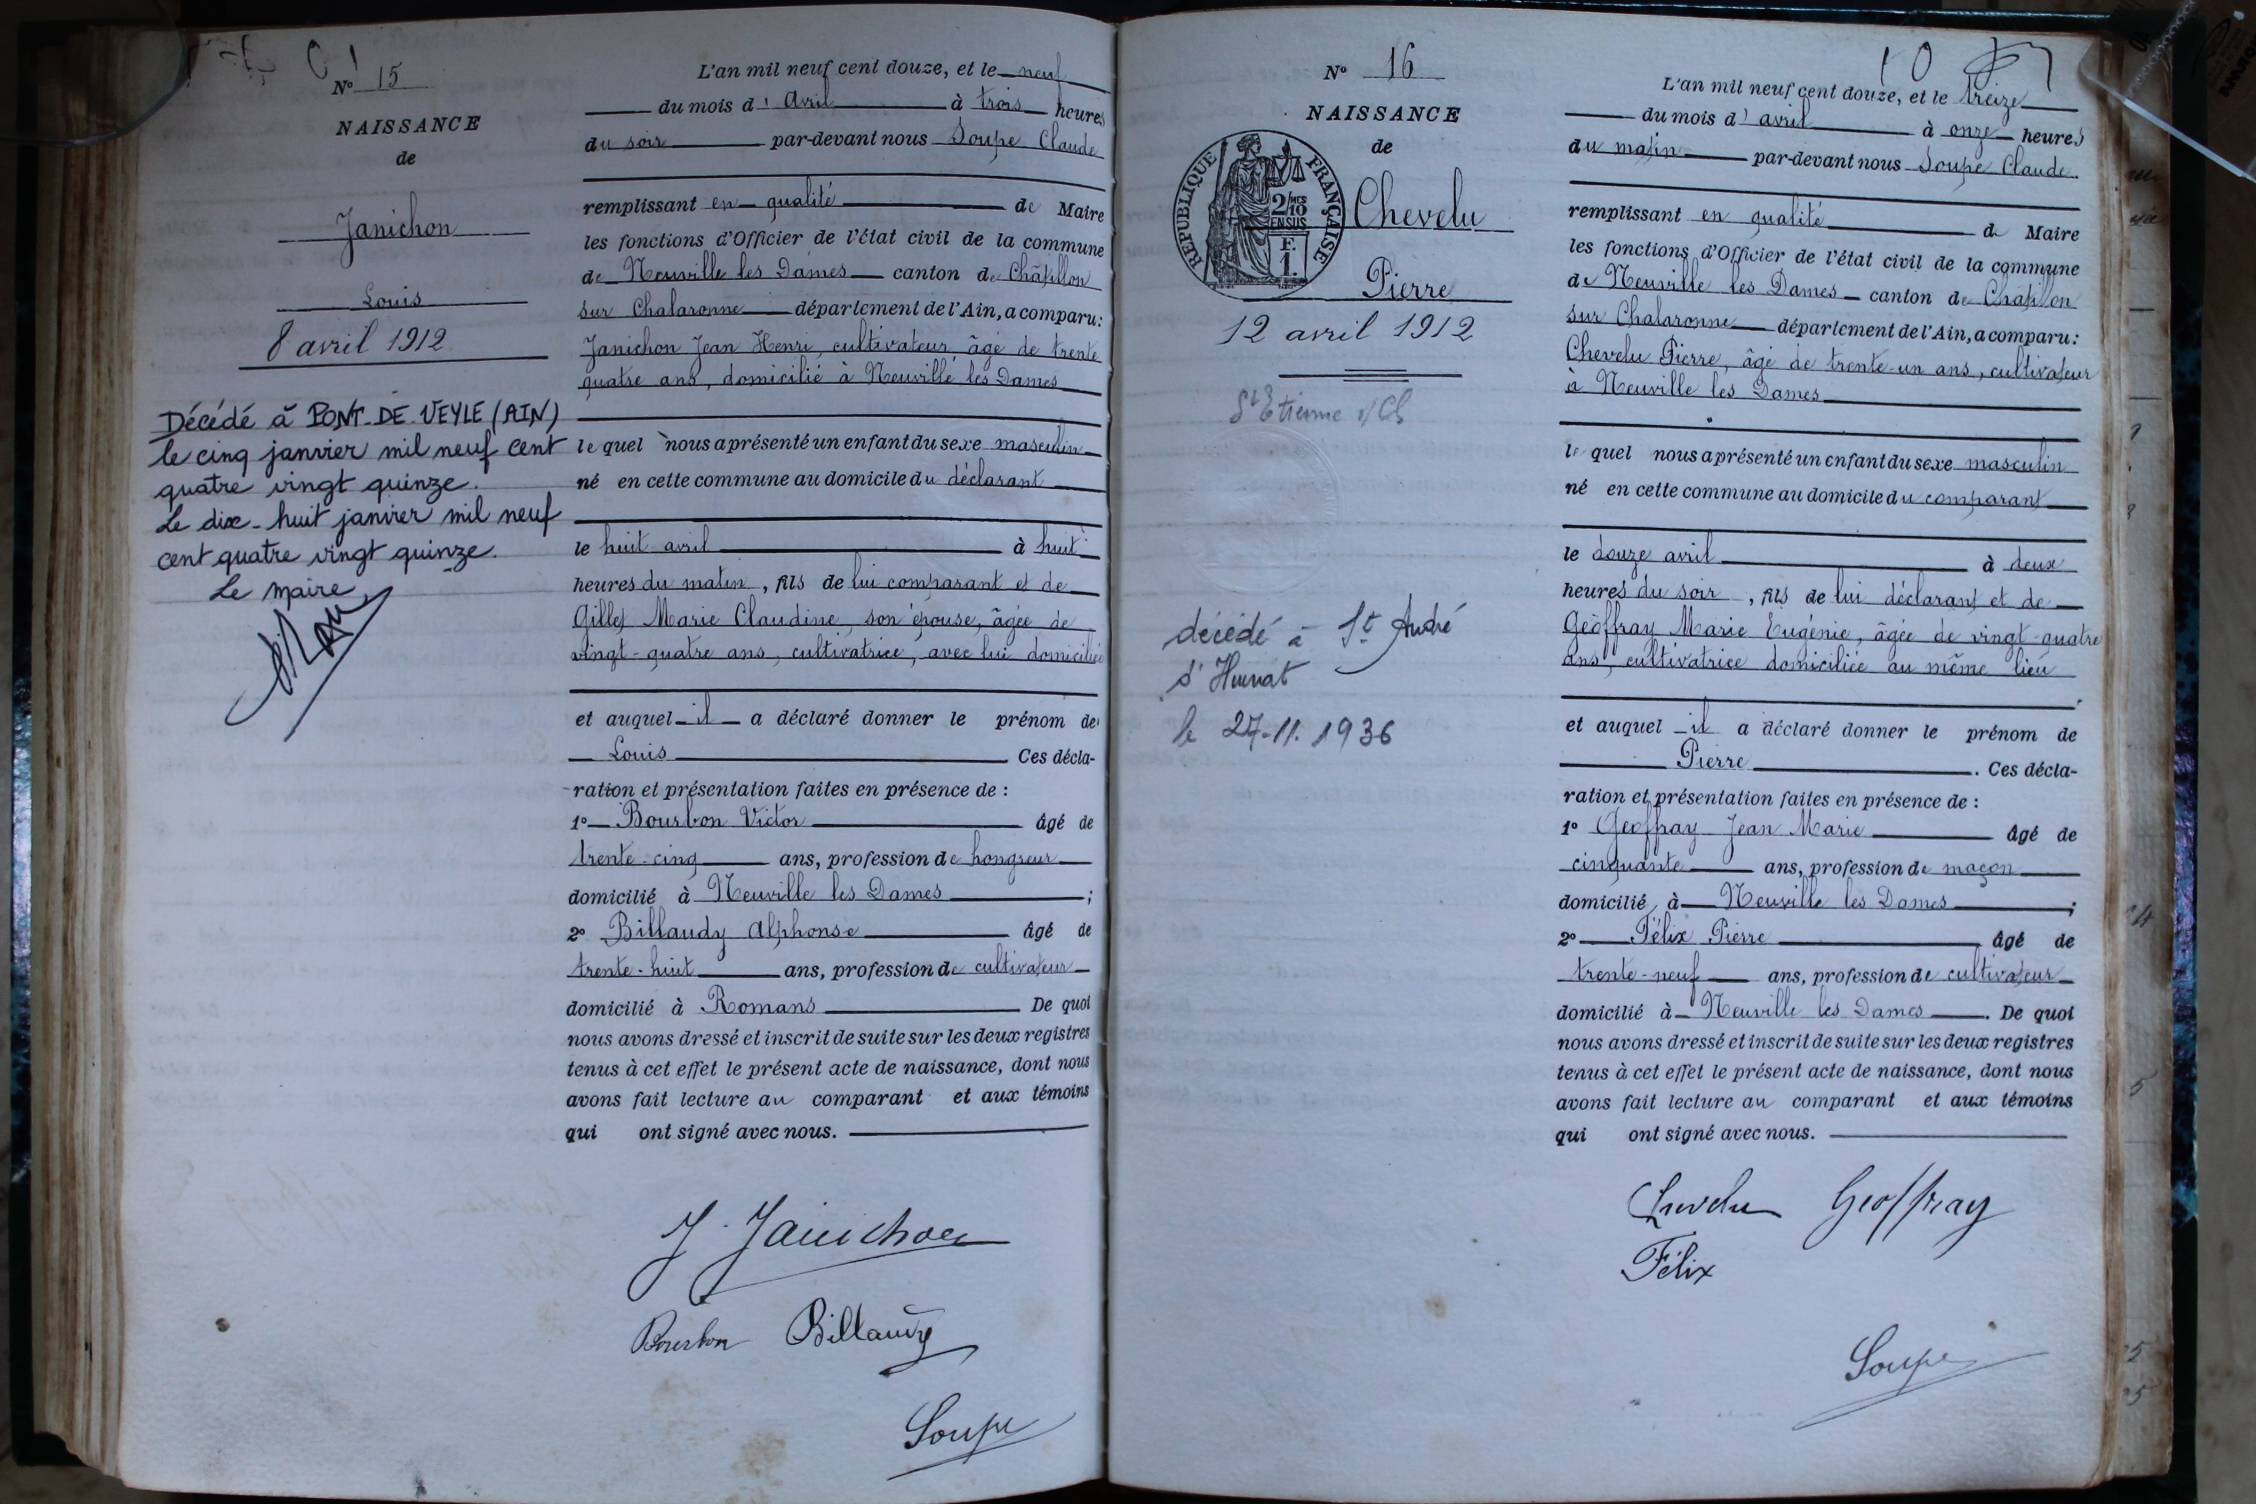 Nº 15
NAISSANCE
de
Janichon
Louis
8 avril 1912
Décédé à PONT-DE-VEYLE (AIN)
le cinq janvier mil neuf cent
quatre vingt quinze.
Le dix-huit janvier mil neuf
cent quatre vingt quinze.
Le Maire,
L'an mil neuf cent douze, et le neuf
du mois d' Avril à trois heures
du soir par-devant nous Soupe Claude
remplissant en qualité de Maire
les fonctions d'Officier de l'état civil de la commune
de Neuville les Dames canton de Châtillon
sur Chalaronne département de l'Ain, a comparu:
Janichon Jean Henri, cultivateur, âgé de trente
quatre ans, domicilié à Neuville les Dames
le quel nous a présenté un enfant du sexe masculin
né en cette commune au domicile du déclarant
le huit avril à huit
heures du matin, fils de lui comparant et de
Gillet Marie Claudine, son épouse, âgée de
vingt-quatre ans, cultivatrice, avec lui domiciliée
et auquel il a déclaré donner le prénom de
Louis Ces décla-
ration et présentation faites en présence de :
1º Bourbon Victor âgé de
trente-cinq ans, profession de hongreur
domicilié à Neuville les Dames ;
2º Billaudy Alphonse âgé de
trente-huit ans, profession de cultivateur
domicilié à Romans De quoi
nous avons dressé et inscrit de suite sur les deux registres
tenus à cet effet le présent acte de naissance, dont nous
avons fait lecture au comparant et aux témoins
qui ont signé avec nous.
J. Janichon
Bourbon Billaudy
Soupe
Nº 16
NAISSANCE
de
REPUBLIQUE FRANÇAISE
2/10
MES
EN SUS
F.
1.
Chevelu
Pierre
12 avril 1912
St Etienne s/Ch
décédé à St André
d'Huiriat
le 27-11.1936
L'an mil neuf cent douze, et le treize
du mois d' avril à onze heures
du matin par-devant nous Soupe Claude
remplissant en qualité de Maire
les fonctions d'Officier de l'état civil de la commune
de Neuville les Dames canton de Châtillon
sur Chalaronne département de l'Ain, a comparu:
Chevelu Pierre, âgé de trente-un ans, cultivateur
à Neuville les Dames
le quel nous a présenté un enfant du sexe masculin
né en cette commune au domicile du comparant
le douze avril à deux
heures du soir, fils de lui déclarant et de
Géoffray Marie Eugénie, âgée de vingt-quatre
ans, cultivatrice domiciliée au même lieu
et auquel il a déclaré donner le prénom de
Pierre . Ces décla-
ration et présentation faites en présence de :
1º Geoffray Jean Marie âgé de
cinquante ans, profession de maçon
domicilié à Neuville les Dames ;
2º Félix Pierre âgé de
trente-neuf ans, profession de cultivateur
domicilié à Neuville les Dames . De quoi
nous avons dressé et inscrit de suite sur les deux registres
tenus à cet effet le présent acte de naissance, dont nous
avons fait lecture au comparant et aux témoins
qui ont signé avec nous.
Chevelu Geoffray
Félix
Soupe